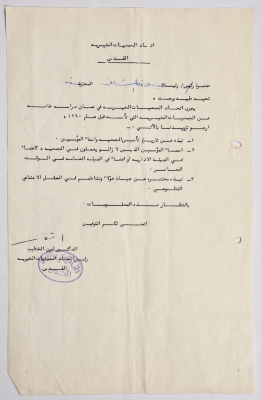 اتحاد الجمعيات الخيرية
القدس
حضرة رئيس / رئيسة المحترمة
تحية طيبة وبعد ،
يجري اتحاد الجمعيات الخيرية في عمان دراسة خاصة
عن الجمعيات الخيرية التي تأسست قبل عام ١٩٦٠
ارجو تزويدنا بالآتي :-
١- نبذة عن تاريخ تأسيس الجمعية واسماء المؤسسين .
٢- اسماء المؤسسين الذين لا زالو يعملون في الجمعية كاعضاء
في الهيئة الادارية او اعضاء في الهيئة العامة في الوقت
الحاضر .
٣- نبذة مختصرة عن حياة هؤلاء ونشاطهم في الحقل الاجتماعي
التطوعي .
بانتظار هذه المعلومات .
اتمنى لكم التوفيق
الدكتور امين الخطيب
رئيس اتحاد الجمعيات الخيرية
القدس